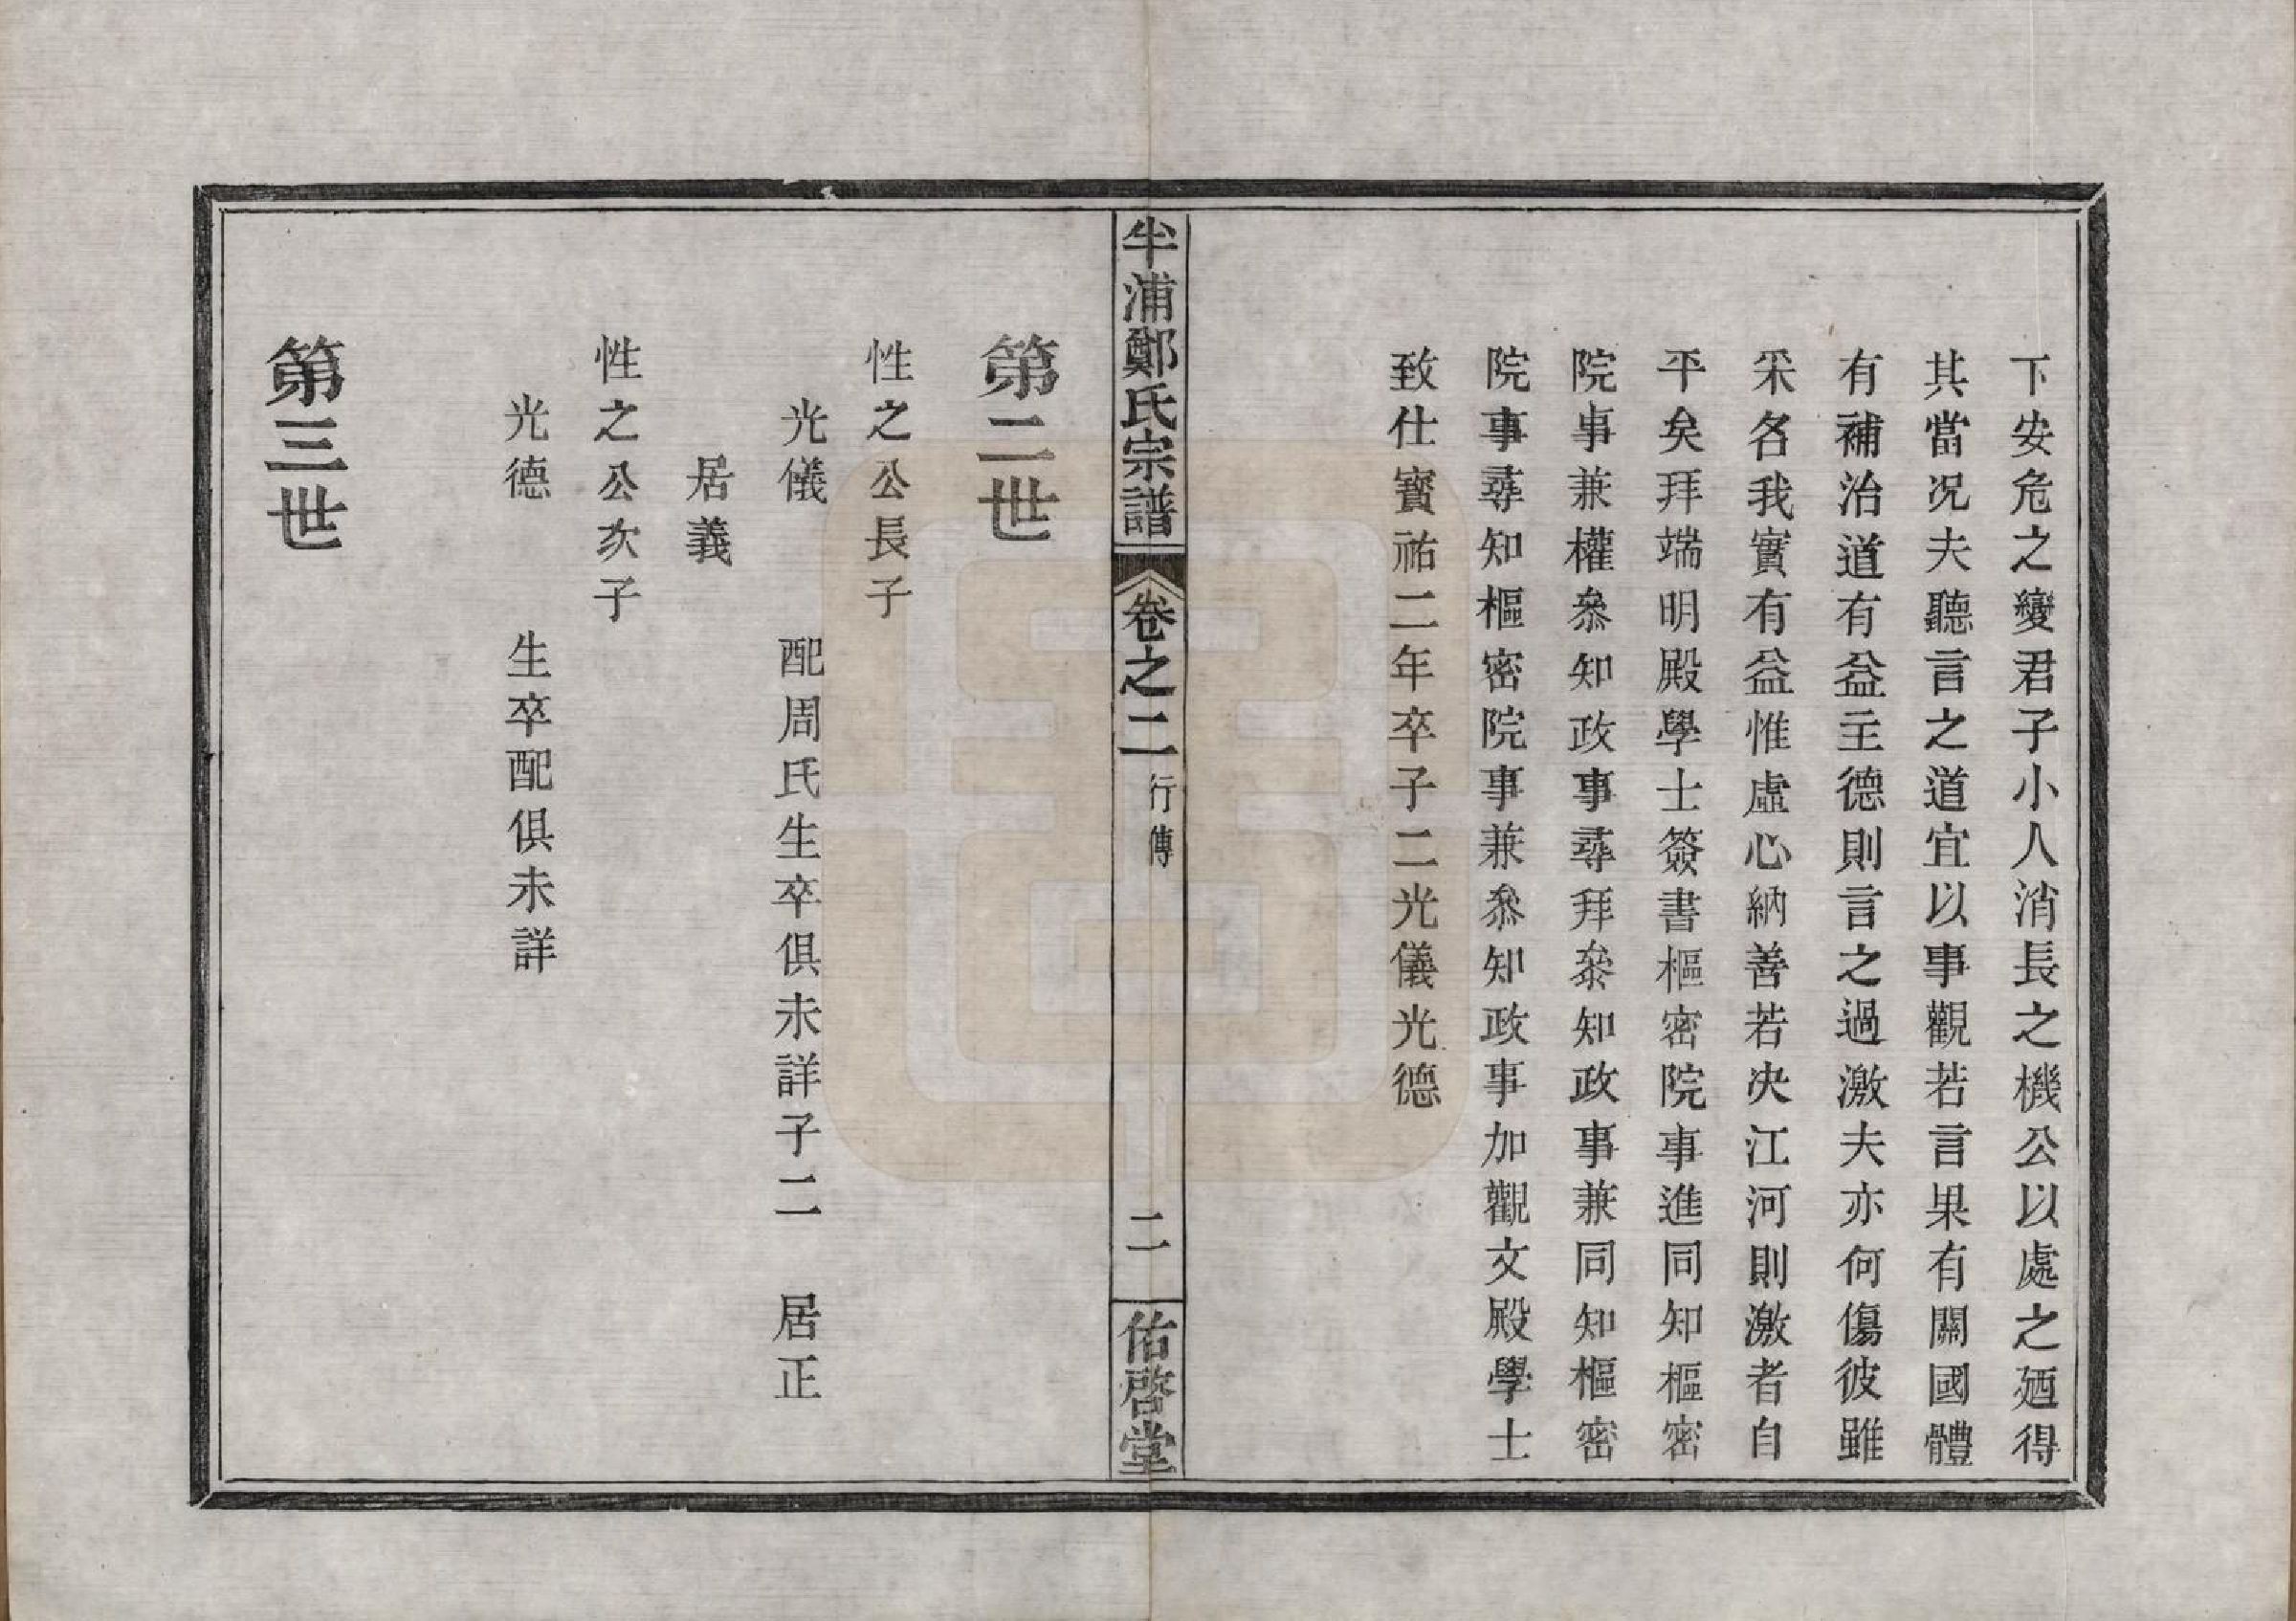 下安危之變君子小人消長之機公以處之廼得
其當況夫聽言之道宜以事觀若言果有關國體
有補治道有益主德則言之過激夫亦何傷彼雖
采名我實有益惟虛心納善若决江河則激者自
平矣拜端明殿學士簽書樞密院事進同知樞密
院事兼權叅知政事尋拜叅知政事兼同知樞密
院事尋知樞密院事兼叅知政事加觀文殿學士
致仕寳祐二年卒子二光儀光德
半浦鄭氏宗譜 卷之二 行傳 二 佑啓堂
第二世
性之公長子
光儀 配周氏生卒俱未詳子二 居正
居義
性之公次子
光德 生卒配俱未詳
第三世